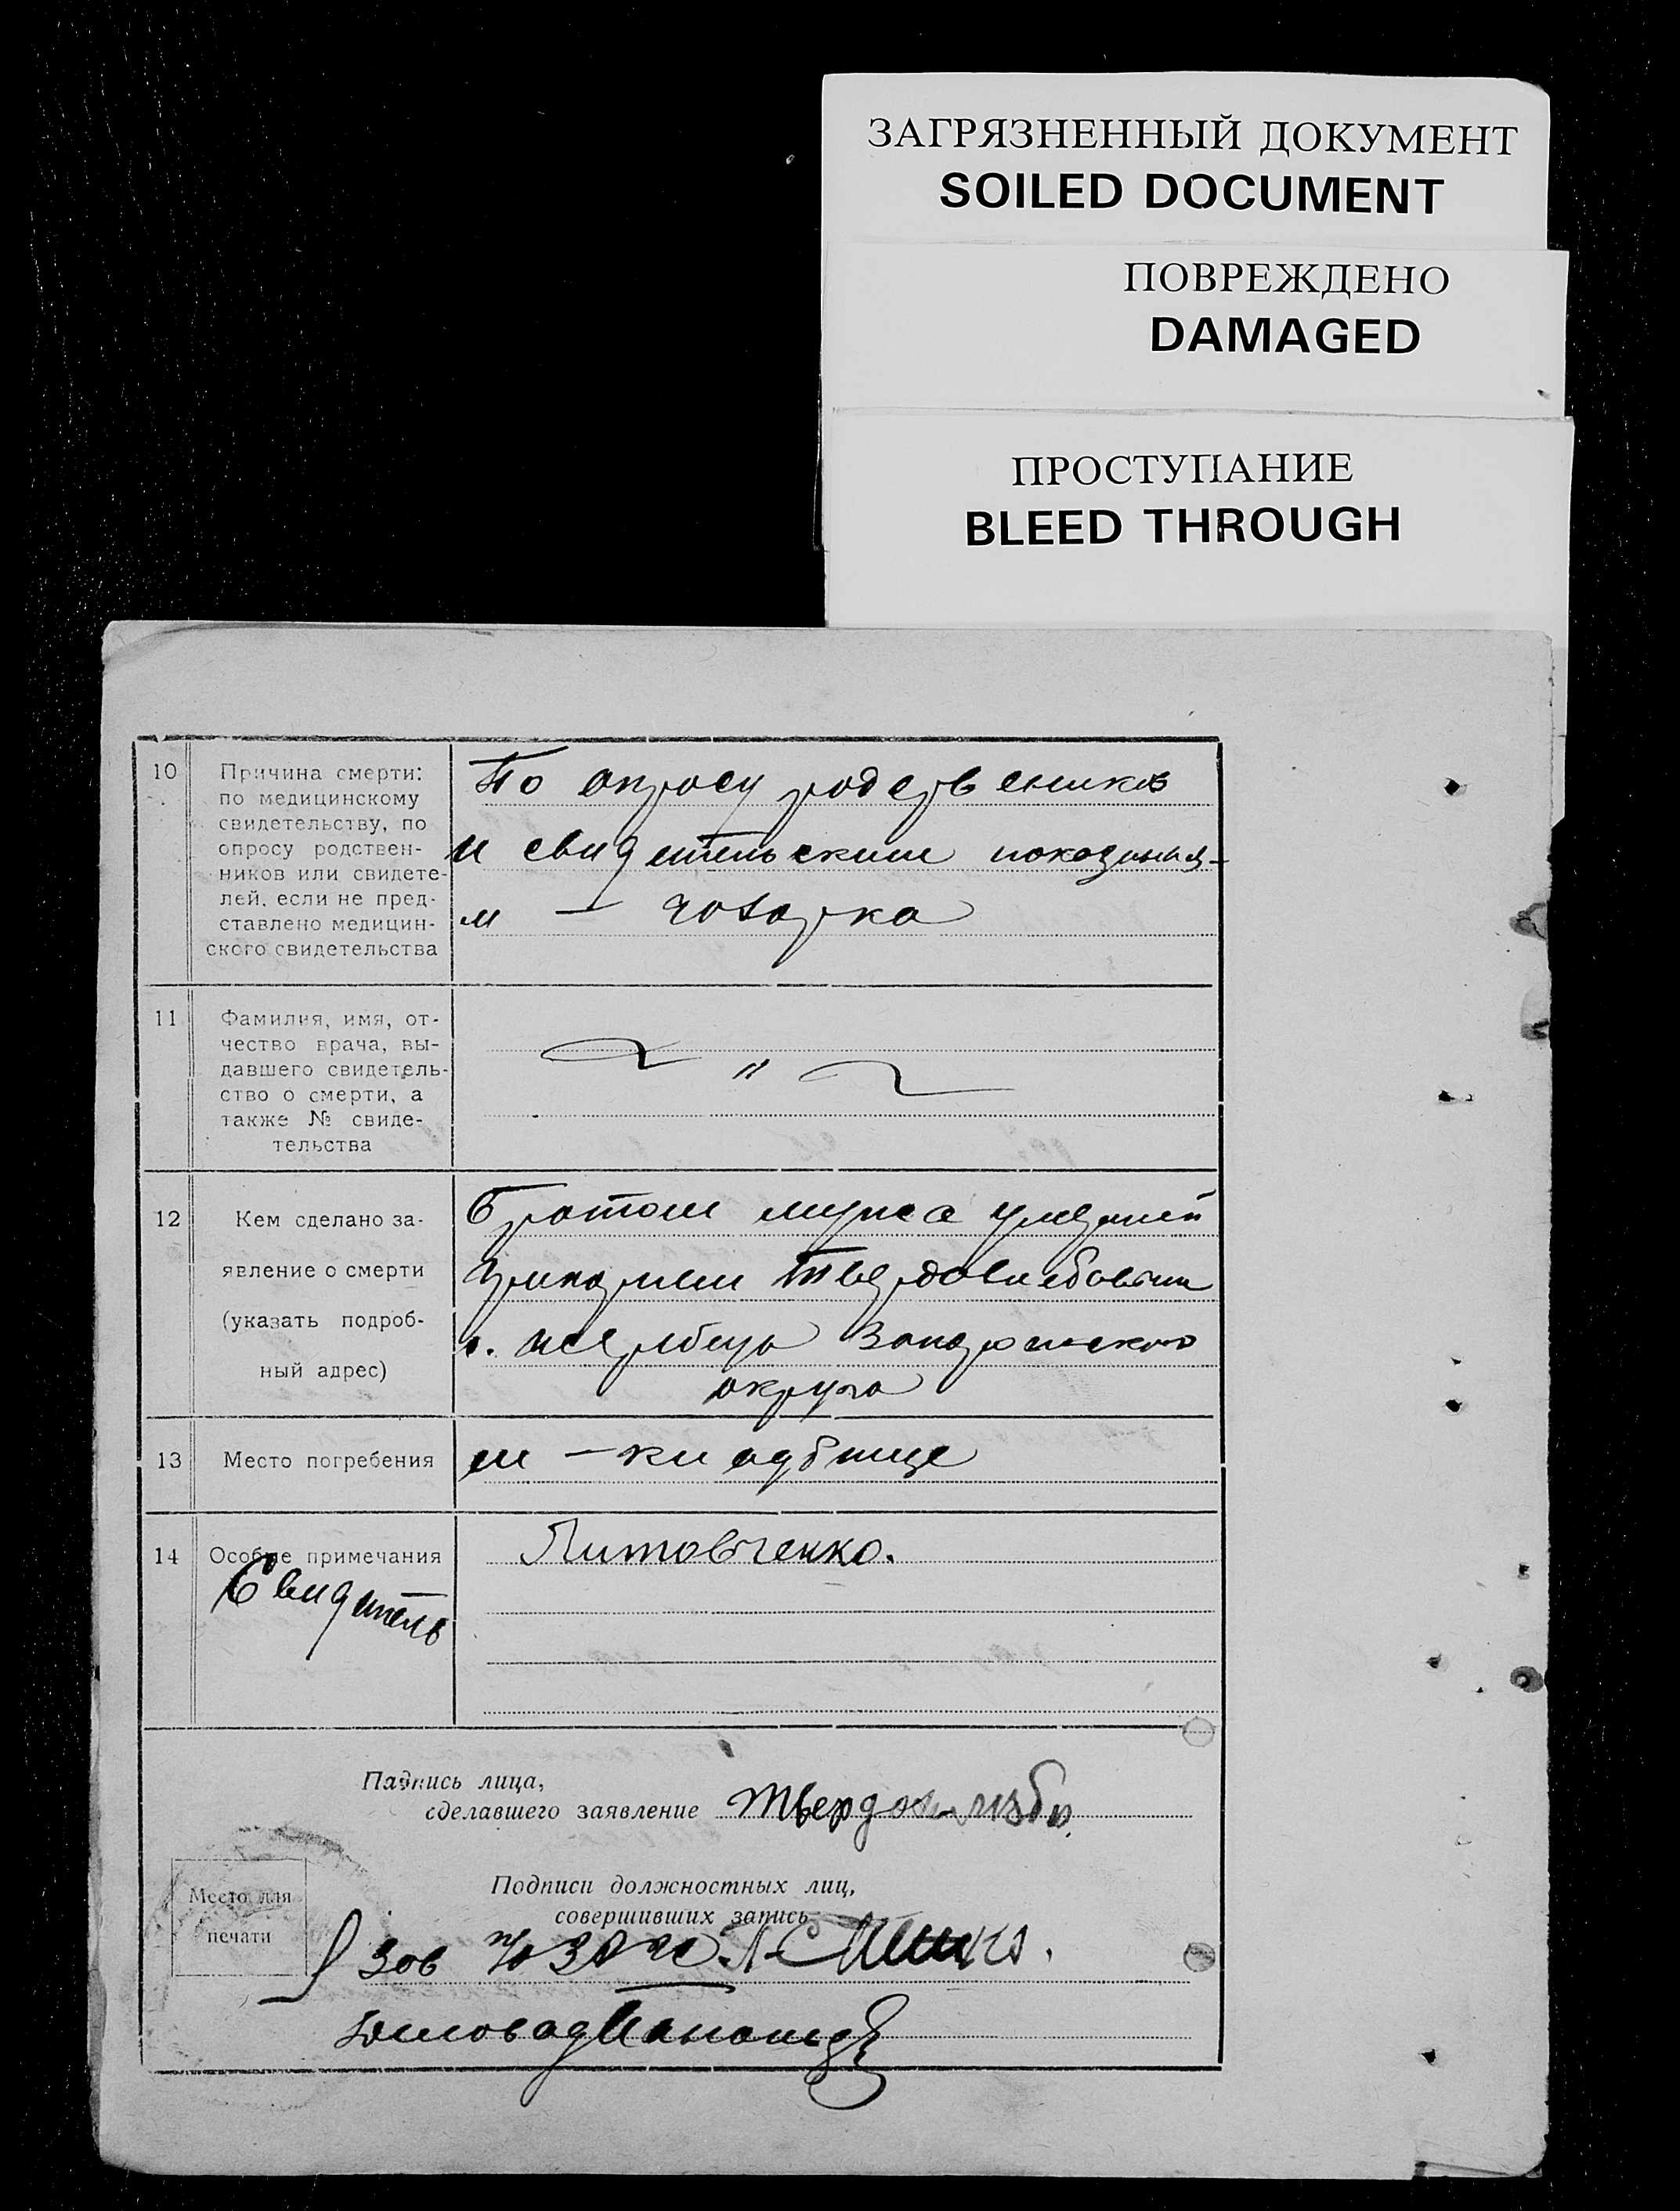 ЗАГРЯЗНЕННЫЙ ДОКУМЕНТ
SOILED DOCUMENT
ПОВРЕЖДЕНО
DAMAGED
ПРОСТУПАНИЕ
BLEED THROUGH
10
Причина смерти:
по медицинскому
свидетельству, по
опросу родствен-
ников или свидете-
лей, если не пред-
ставлено медицин-
ского свидетельства
По опросу родствеников
и свидетельским показания-
м —
11
Фамилия, имя, от-
чество врача, вы-
давшего свидетель-
ство о смерти, а
также № свиде-
тельства
"
12
Кем сделано за-
явление о смерти
(указать подроб-
ный адрес)
Братом мужа умершей
округа
13
Место погребения
кладбище
14
Особые примечания
Свидетель
Литовченко.
Падпись лица,
сделавшего заявление
Подписи должностных лиц,
совершивших запись
Место для
печати
Зав